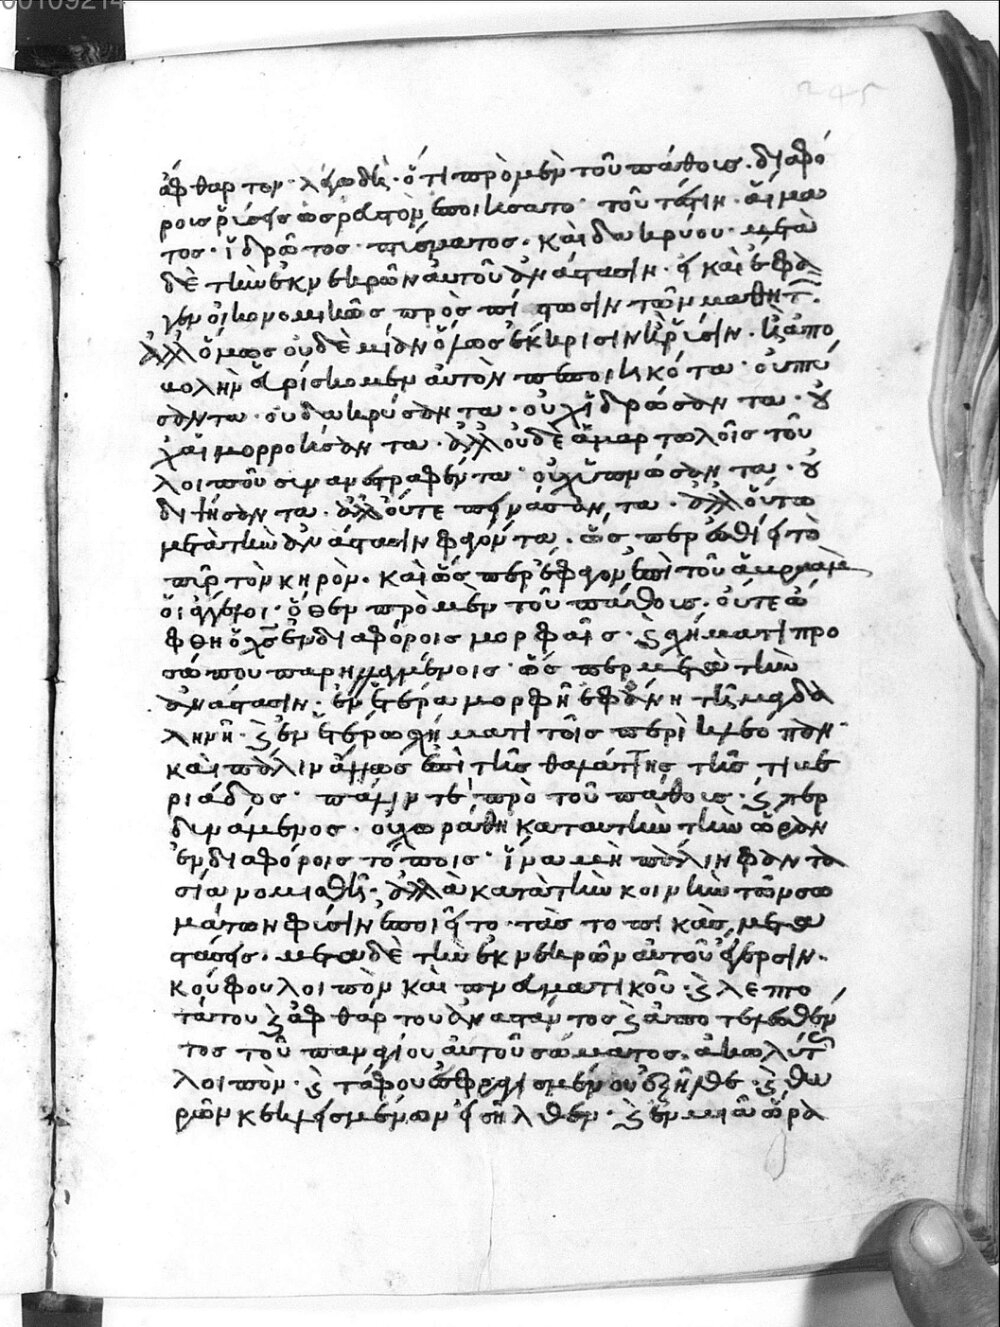 00109214
245
ἄφθαρτον λέγω δὲ· ὅτι πρὸ μὲν τοῦ πάθους· διαφό
ροις ῥύσεις
τος· ἱδρῶτος· πτύσματος· καὶ δακρύου· μετὰ
δὲ τὴν ἐκ νεκρῶν αὐτοῦ ἀνάστασιν· εἰ καὶ ἔφα
γεν οἰκονομικῶς πρὸς πίστωσιν τῶν μαθητῶν·
ἀλλ' ὅμως οὐδὲ μίαν ὅμως ἔκκρισιν καὶ ῥύσιν· καὶ ἀπο
βολὴν εὑρίσκομεν αὐτὸν πεποιηκότα· οὐ πτύ
σαντα· οὐ δακρύσαντα· οὐχ ἱδρώσαντα· οὐ
χ' αἱμορροήσαντα· ἀλλ' οὐδὲ ἁμαρτωλοῖς τοῦ
λοιποῦ συναναστραφέντα· οὐχ ὑπνώσαντα· οὐ
διψήσαντα· ἀλλ' οὔτε πεινάσαντα· ἀλλ' οὕτω
μετὰ τὴν ἀνάστασιν φαγόντα· ὥσπερ ἐσθίει τὸ
πῦρ τὸν κηρόν· καὶ ὥσπερ ἔφαγον ἐπὶ τοῦ ἀβραὰμ
οἱ ἄγγελοι· ὅθεν πρὸ μὲν τοῦ πάθους· οὔτε ὤ
φθη ὁ χς ἐν διαφόροις μορφαῖς· καὶ σχήματι προ
σώπου παρηλλαγμένοις· ὥσπερ μετὰ τὴν
ἀνάστασιν· ἐν ἑτέρα μορφῆ ἐφάνη τῆ μαγδα
ληνῆ· καὶ ἐν ἑτέρω σχήματι τοῖς περὶ κλεόπαν·
καὶ πάλιν ἄλλως ἐπὶ τῆς θαλάττης τῆς τιβε
ριάδος· πάλιν τὲ πρὸ τοῦ πάθους· καὶ περ
δυνάμενος· οὐχ ὡράθη κατ' αὐτὴν τὴν ὥραν
ἐν διαφόροις τόποις· ἵνα μὴ πάλιν φαντα
σία νομισθῆ· ἀλλὰ κατὰ τὴν κοινὴν τῶν σω
μάτων φύσιν ἐποιεῖτο τὰς τοπικὰς μετα
στάσεις· μετὰ δὲ τὴν ἐκ νεκρῶν αὐτοῦ ἔγερσιν·
κούφου λοιπὸν καὶ πνευματικοῦ· καὶ λεπτο
τάτου καὶ ἀφθάρτου ἀναστάντος καὶ ἀποτελεσθέν
τος τοῦ παναγίου αὐτοῦ σώματος· ἀκωλύτως
λοιπὸν· καὶ τάφου ἐσφραγισμένου ἐξῆλθε· καὶ θυ
ρῶν κεκλεισμένων εἰσῆλθεν· καὶ ἐν μιᾶ ὥρα